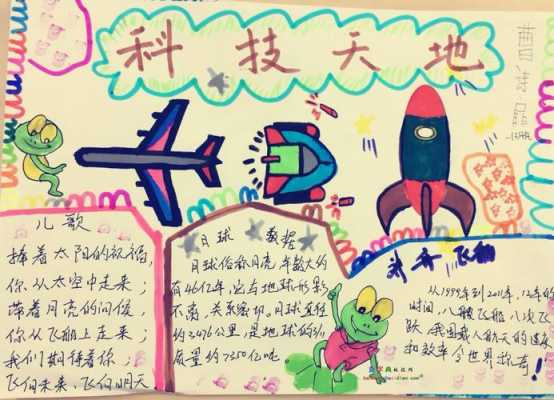 科技天地
儿歌
捧着太阳的祝福,
你从太空中走来;
带着月亮的问候,
你从飞船上走来;
我们期待着你;
飞向未来,飞向明天
月球 数据
月球俗称月亮,年龄大约
有46亿年,它与地球形影
不离,关系密切,月球直径
约3476公里,是地球的3/11
质量约7350亿吨
飞船
从1999年到2011年,12年的
时间,八艘飞船,八次飞
跃,我国载人航天的速度
和效率令世界称奇!